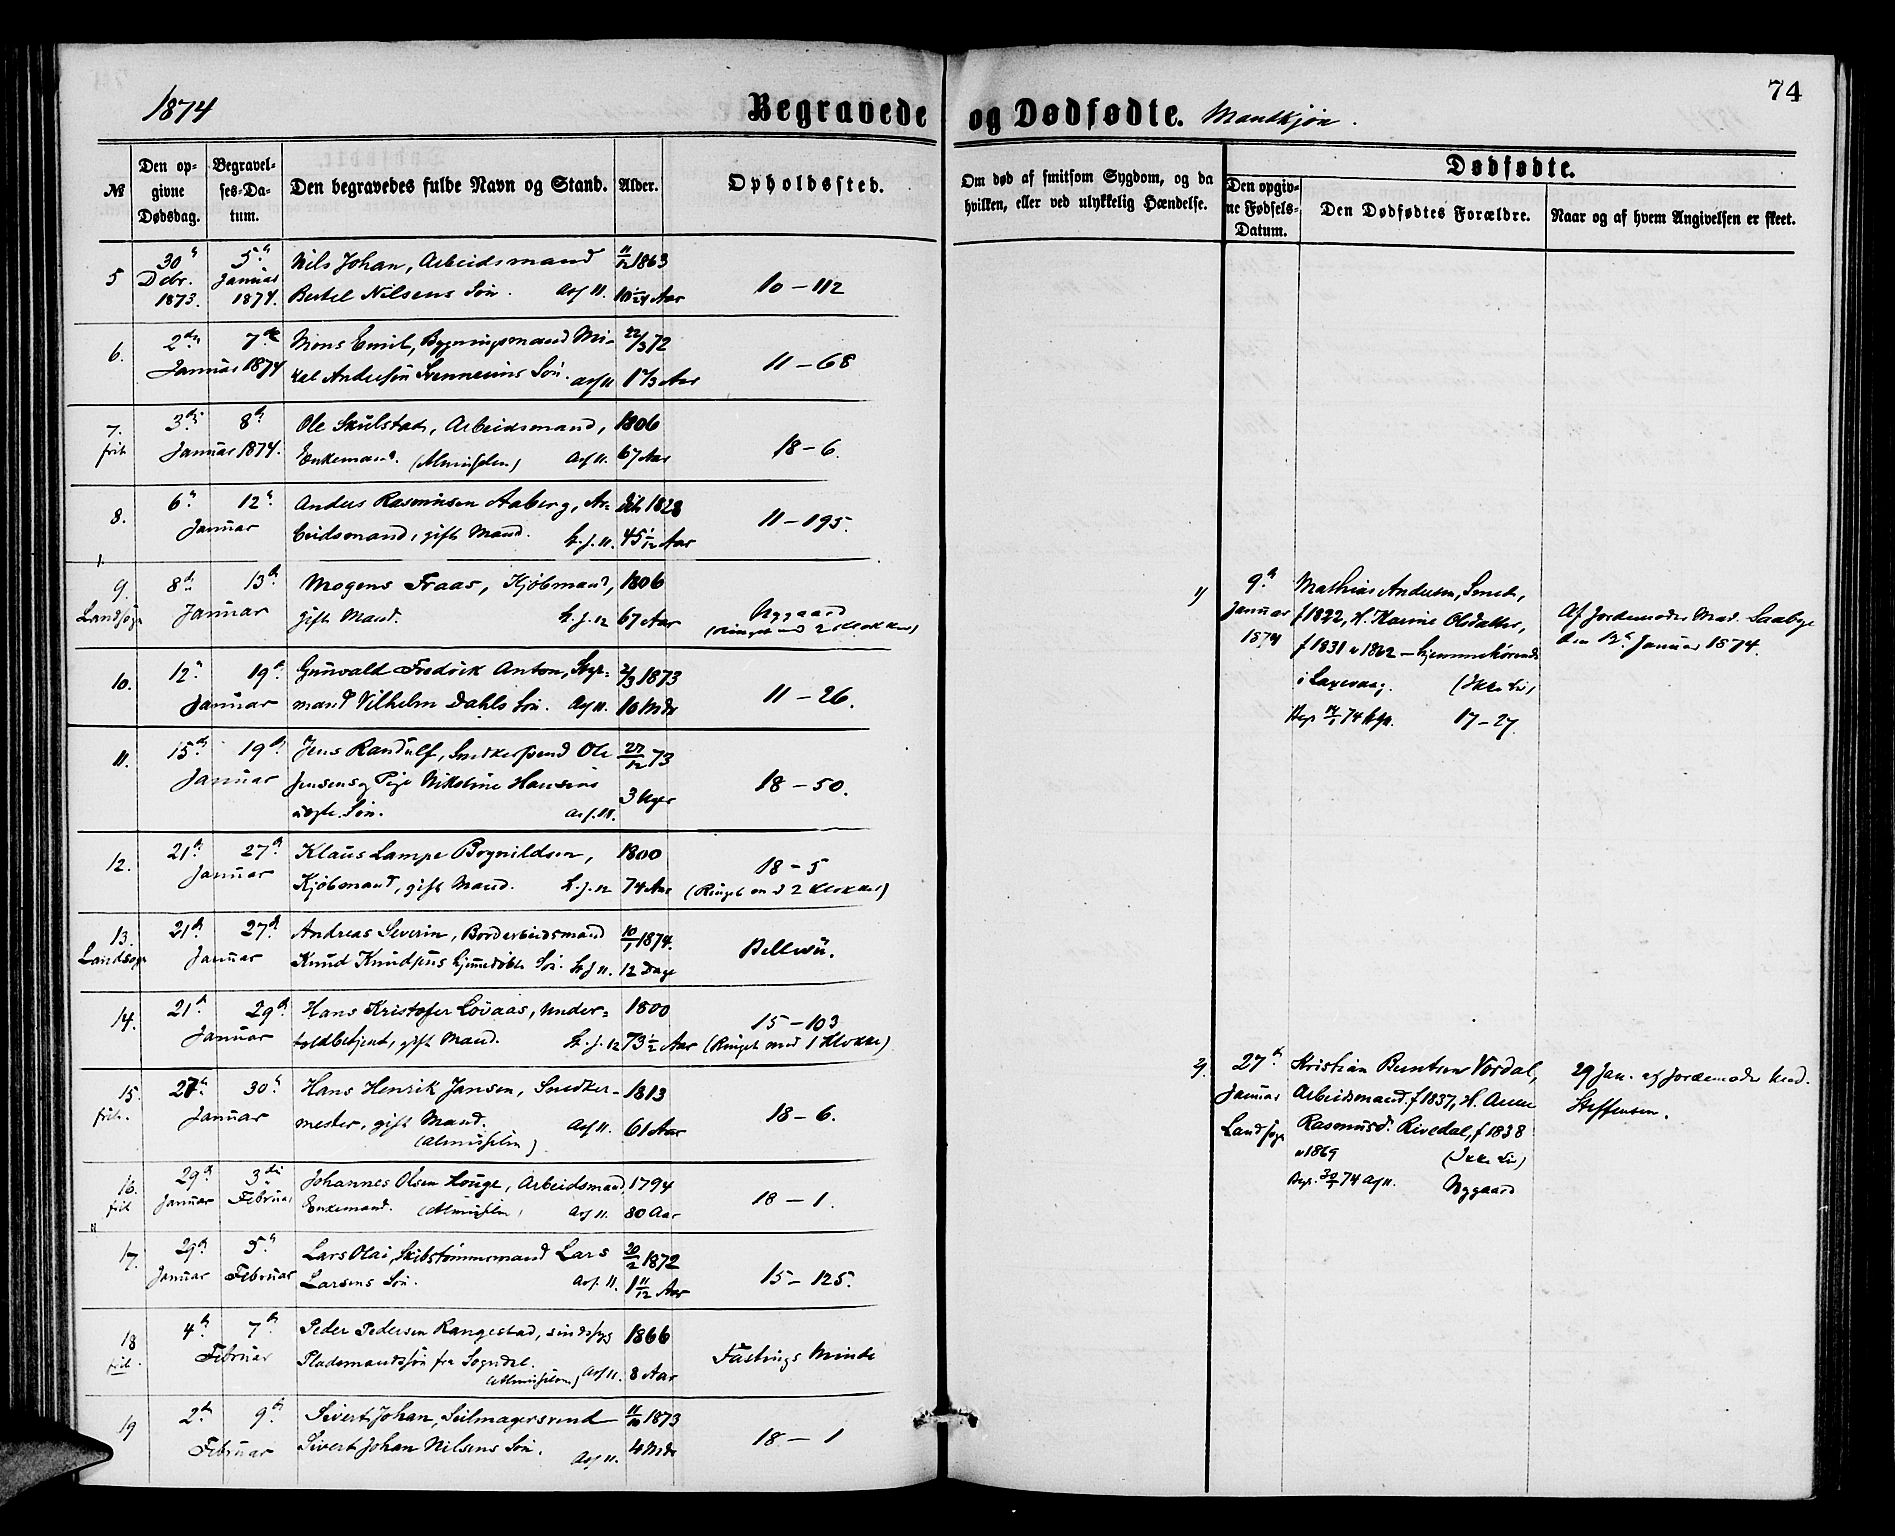 1874
Begravede og Dødfødte. Mandkjøn.
74
№
Den opgivne Dødsdag.
Begravelses-Datum.
Den begravedes fulde Navn og Stand.
Alder.
Opholdssted.
Om død af smitsom Sygdom, og da hvilken, eller ved ulykkelig Hændelse.
Dødfødte.
Den opgivne Fødsels-Datum.
Den Dødfødtes Forældre.
Naar og af hvem Angivelsen er skeet.
5 30 Debr. 1873. 5 Januar 1874.
Nils Johan, Arbeidsmand 11/12 1863
Bertel Nilsens Søn. Asf 11. 10 1/24 Aar 10 – 112
6. 2den 7de Januar 1874
Mons Emil, Bygningsmand Mi- 22/3 72
kel Andersøn Svennevins Søn. asf 11 Aar 11 – 68
7. frit 3die 8de Januar 1874.
Ole Skulstad, Arbeidsmand, 1806
Enkemand. Asf 11. 67 Aar 18 – 6.
8. 6 12 Januar
Anders Rasmusen Aaberg, Ar- 1828
beidsmand, gift Mand. H. J. 11. 45 1/12 Aar 11 – 195.
9. Landsogn 8de 13de Januar
Mogens Fraas, Kjøbmand, 1806
gift Mand. H. J. 12 67 Aar Nygaard
(Ringet med 2 Klokker)
10. 12 19 Januar
Grunvald Fredrik Anton, Styr- 2/3 1873
mand Vilhelm Dahls Søn. Asf 11. 10 Mdr 11 – 26.
11. 15de 19de Januar
Jens Randulf, Snedkersvend Ole 27/12 73
Jensens og Pige Nikoline Hansens
uægte Søn. Asf. 11. 3 Uger 18 – 50.
12. 21de 27de Januar
Klaus Lampe Bognildsen, 1800
Kjøbmand, gift Mand. H. J. 12 74 Aar 18 – 5
(Ringet med 2 Klokker)
13. Landsogn 21de 27de Januar
Andreas Severin, Bordarbeidsmand 10/1 1874.
Knud Knudsens hjemmedøbte Søn. H J 11. 12 Dage Bellevü.
14. 21 29de Januar
Hans Kristofer Lövaas, under- 1800
toldbetjent, gift Mand. H. J. 12 73 1/2 Aar 15 – 103
(Ringet med 1 Klokke)
15. frit. 27 30 Januar
Hans Henrik Jansen, Snedker- 1813
mester, gift Mand. Asf 11. 61 Aar 18 – 6.
16. frit 29de Januar 3die Februar
Johannes Olsen Houge, Arbeidsmand, 1794
Enkemand. Asf 11. 80 Aar 18 – 1.
17. 29de Januar 5 Februar
Lars Olai, Skibstømmermand Lars 20/2 1872
Larsens Søn. Asf. 11. 1 11/12 Aar 15 – 125.
18 frit. 4de 7de Februar
Peder Pedersen Rangestad, sindssyg 1866
Pladsmandssøn fra Sogndal. Asf 11. 8 Aar Fastings Minde
19 2de 9de Februar
Sivert Johan, Seilmagersvend 11/10 1873
Sivert Johan Nilsens Søn. Asf 11. 4 Mdr 18 – 1
1) 9de Januar 1874
Mathias Andersen, Smed,
f 1822, H. Karine Olsdatter,
f 1831 v 1862 – hjemmehørende
i Laxevaag.
Begr. 14/1 74 17 – 27.
Af Jordemoder Mad. Saabye
den 12 Januar 1874.
2. 27de Januar Landsogn
Kristian Berntsen Vordal,
Arbeidsmand. f 1837, H. Anne
Rasmusd. Rivedal, f 1838
v 1869
Begr. 30/1 74 Asf 11. Nygaard
29 Jan. af Jordemoder Mad.
Steffensen.